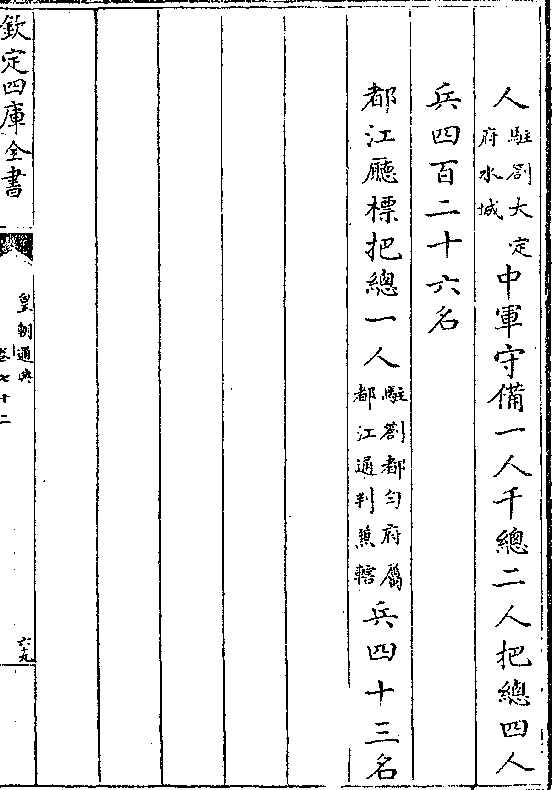 人駐劄大定府水城中軍守備一人千總二人把總四人
兵四百二十六名
都江廳標把總一人駐劄都匀府屬都江通判兼轄兵四十三名
欽定四庫全書
皇朝通典
卷七十二
六十九